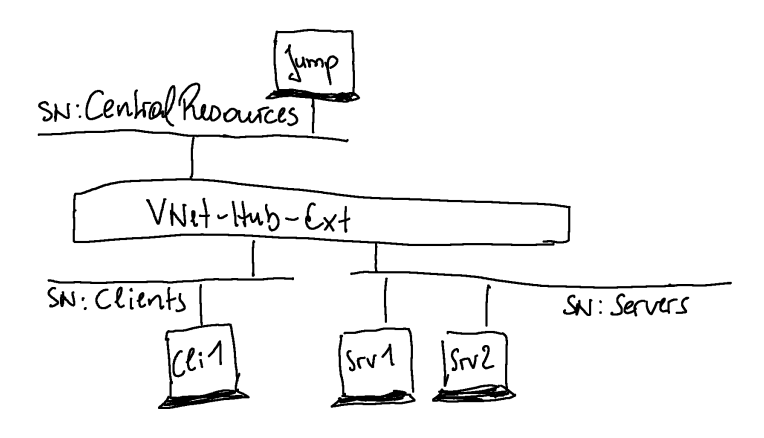 Jump
SN: Central Resources
VNet-Hub-Ext
SN: Clients
SN: Servers
Cli1
Srv1
Srv2